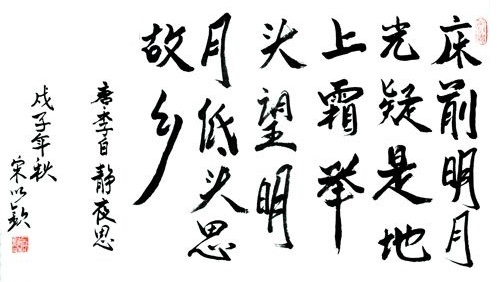 床前明月
光疑是地
上霜举
头望明
月低头思
故乡
唐李白静夜思
戊子年秋
宋以